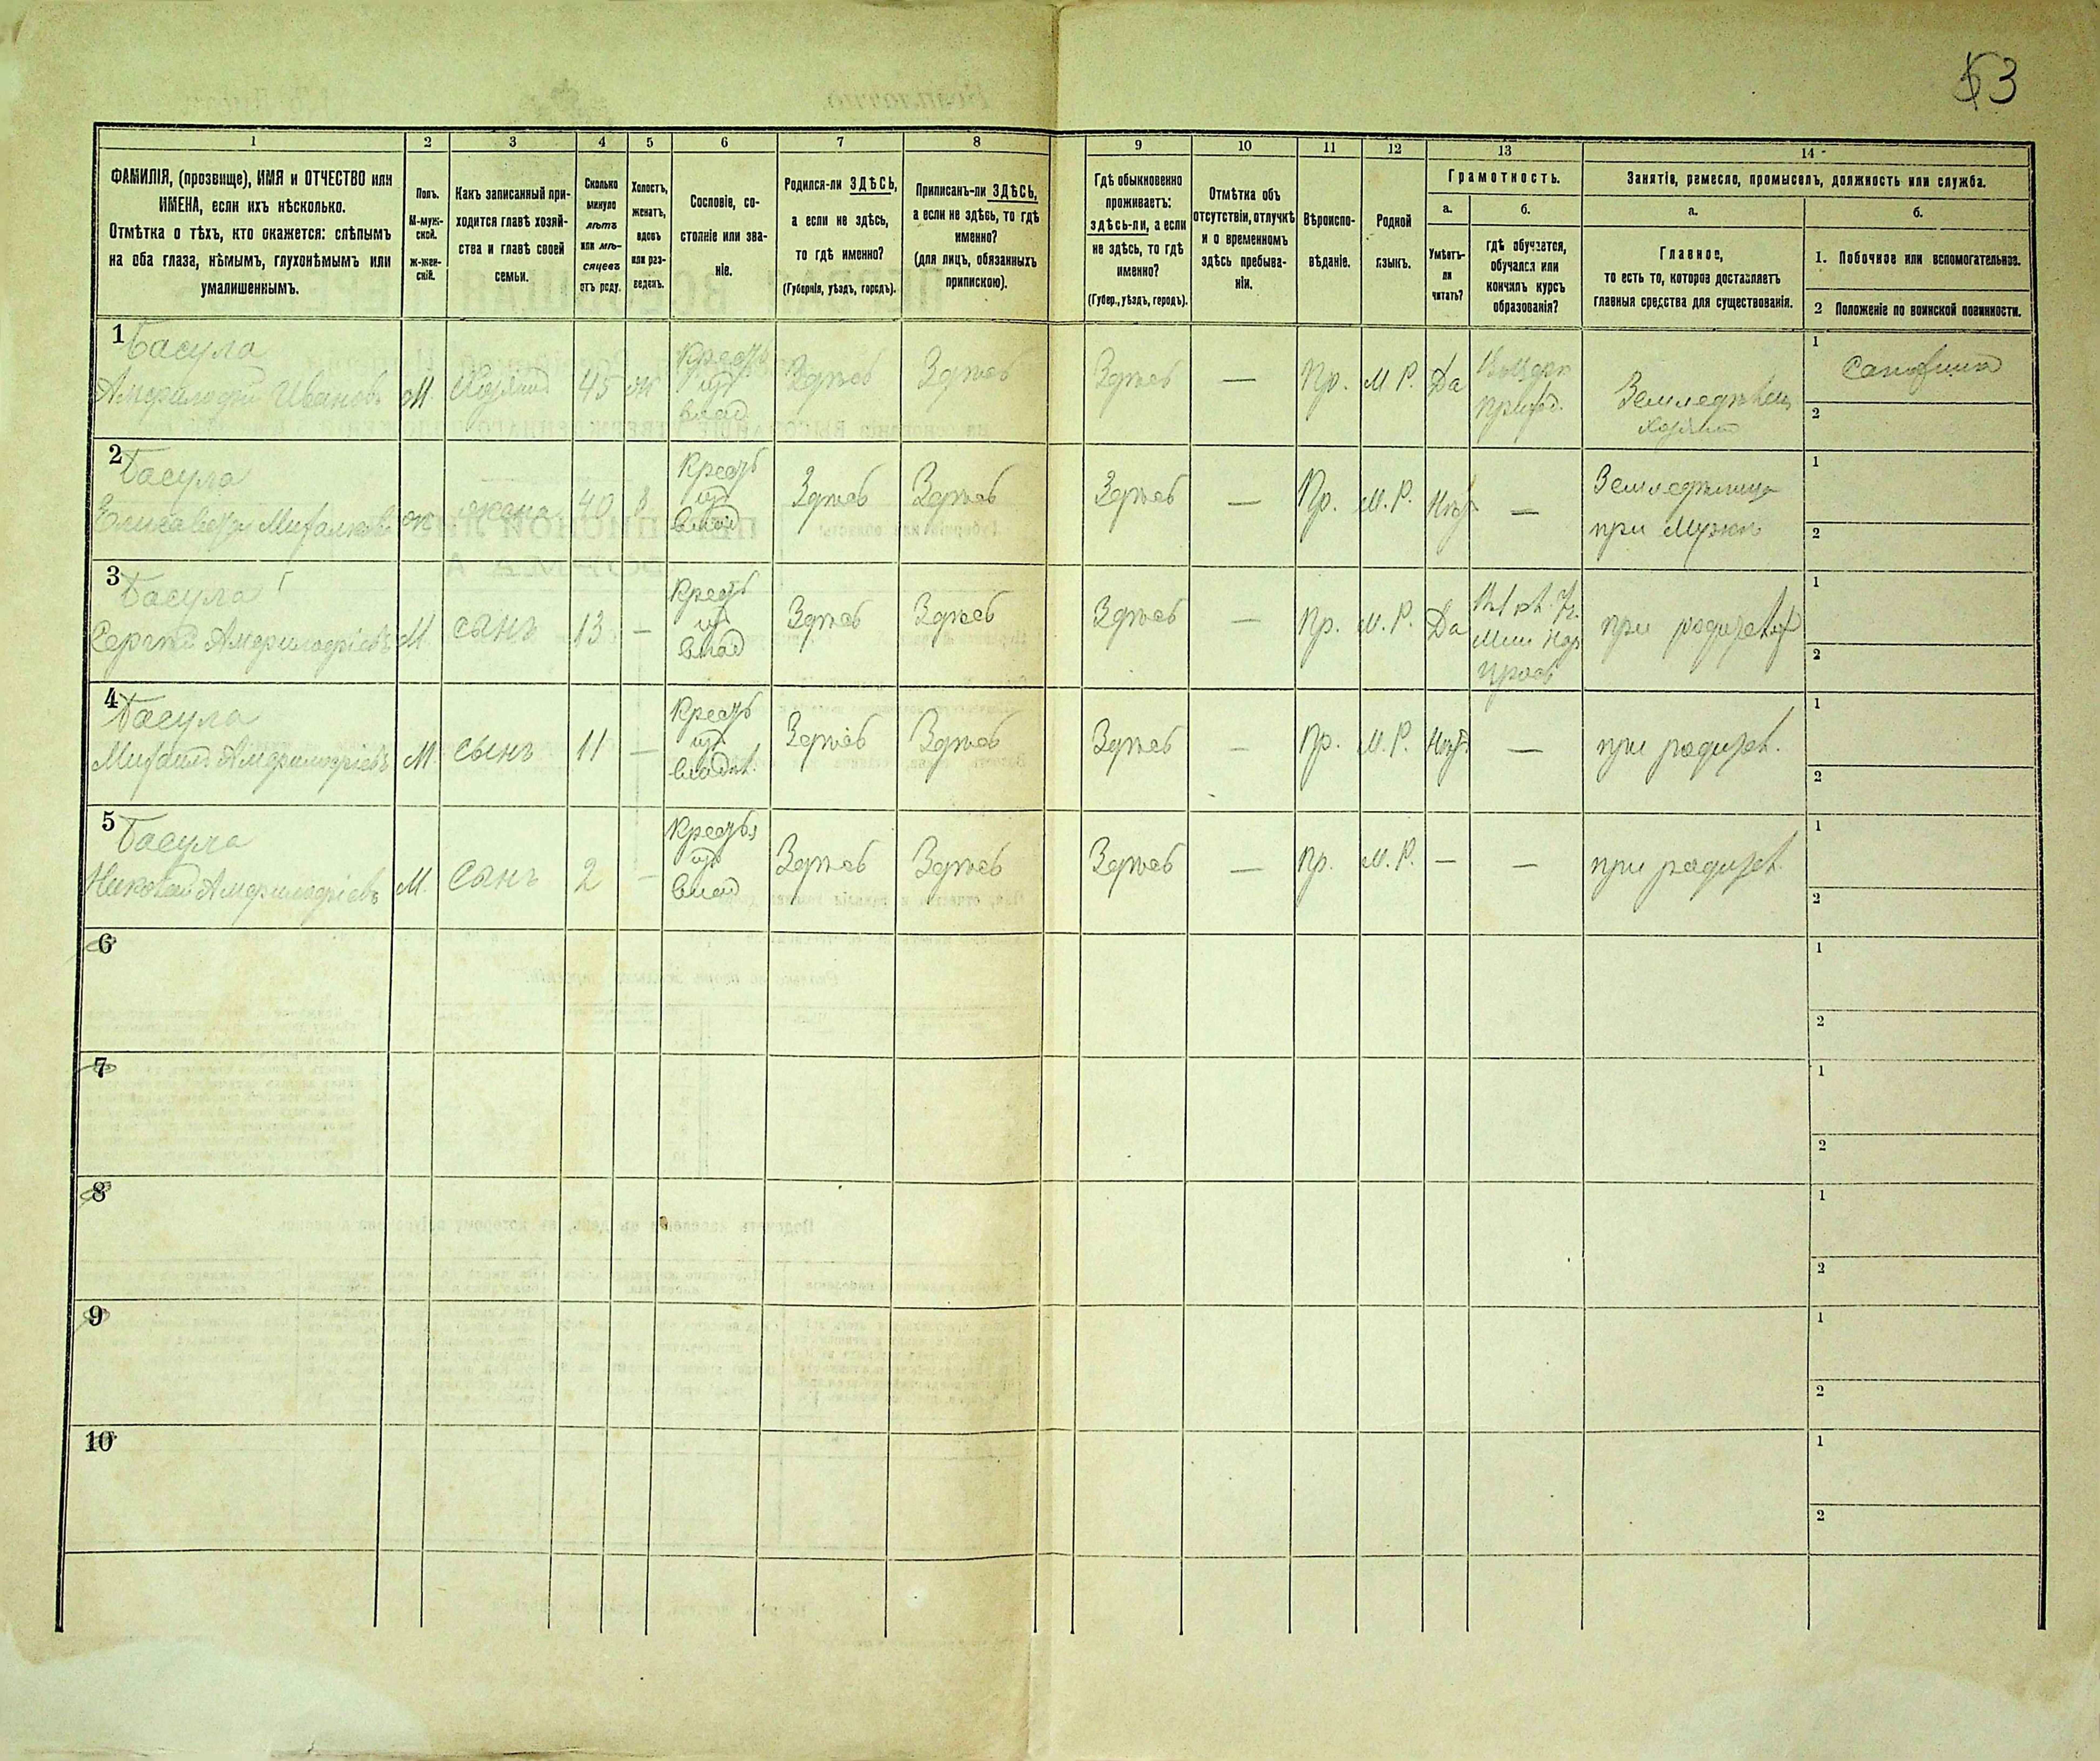 53
1 2 3 4 5 6 7 8 9 10 11 12 13 14
ФАМИЛІЯ, (прозвище), ИМЯ и ОТЧЕСТВО или
ИМЕНА, если ихъ нѣсколько.
Отмѣтка о тѣхъ, кто окажется: слѣпымъ
на оба глаза, нѣмымъ, глухонѣмымъ или
умалишеннымъ.
Полъ.
М-муж-
ской.
Ж-жен-
скій.
Какъ записанный при-
ходится главѣ хозяй-
ства и главѣ своей
семьи.
Сколько
минуло
лѣтъ
или мѣ-
сяцевъ
отъ роду.
Холостъ,
женатъ,
вдовъ
или раз-
веденъ.
Сословіе, со-
стояніе или зва-
ніе.
Родился-ли ЗДѢСЬ,
а если не здѣсь,
то гдѣ именно?
(Губернія, уѣздъ, городъ).
Приписанъ-ли ЗДѢСЬ,
а если не здѣсь, то гдѣ
именно?
(для лицъ, обязанныхъ
припискою).
Гдѣ обыкновенно
проживаетъ:
здѣсь-ли, а если
не здѣсь, то гдѣ
именно?
(Губер., уѣздъ, городъ).
Отмѣтка объ
отсутствіи, отлучкѣ
и о временномъ
здѣсь пребыва-
ніи.
Вѣроиспо-
вѣданіе.
Родной
языкъ.
Грамотность.
а.
Умѣетъ-
ли
читать?
б.
гдѣ обучается,
обучался или
кончилъ курсъ
образованія?
Занятіе, ремесло, промыселъ, должность или служба.
а.
Главное,
то есть то, которое доставляетъ
главныя средства для существованія.
б.
1. Побочное или вспомогательное.
2 Положеніе по воинской повинности.
1 Басула
Амфилофій Ивановъ М. Хозяинъ 45 ж Крестъ
из
влад Здѣсь Здѣсь Здѣсь — Пр. М. Р. Да
Земледѣлец
хозяинъ
1
2
2 Басула
Елисавета Михайлова ж жена 40 З Крестъ
из
влад Здѣсь Здѣсь Здѣсь — Пр. М. Р. Нѣт —
Земледѣлица
при Мужѣ
1
2
3 Басула
Сергѣй Амфилофіевъ М. сынъ 13 — Крестъ
из
влад Здѣсь Здѣсь Здѣсь — Пр. М. Р. Да
Мин Нар
Просв
при родителях
1
2
4 Басула
Михаилъ Амфилофіевъ М. сынъ 11 — Крестъ
из
владѣл. Здѣсь Здѣсь Здѣсь — Пр. М. Р. Нѣт. — при родител.
1
2
5 Басула
Николай Амфилофіевъ М. Сынъ 2 — Крестья
из
влад Здѣсь Здѣсь Здѣсь — Пр. М. Р. — — при родител.
1
2
6
1
2
7
1
2
8
1
2
9
1
2
10
1
2